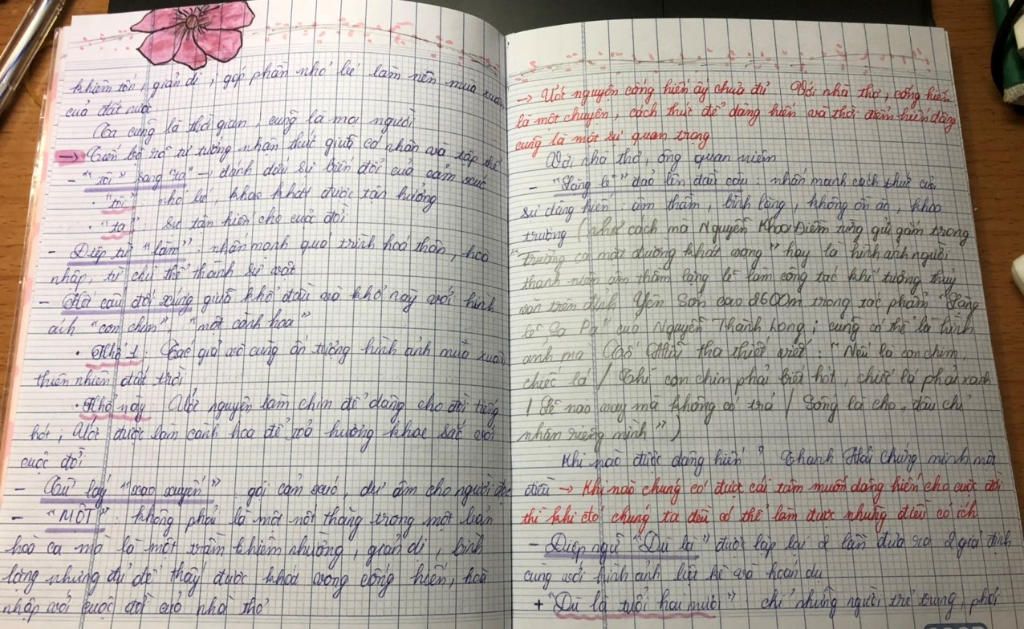 khiêm tốn, giản dị, góp phần nhỏ bé làm nên mùa xuân
của đất nước
Ta cũng là thời gian, cũng là mọi người
→ Tiến bộ rõ từ tưởng nhận thức giữa cá nhân và tập thể
- "tôi" sang "ta" → đánh dấu sự biến đổi của cảm xúc
• "tôi": nhỏ bé, khao khát được tận hưởng
• "ta": sự tận hiến cho cuộc đời
- Điệp từ "làm": nhấn mạnh quá trình hoá thân, hoà
nhập từ chủ thể thành sự vật
- Kết cấu đối xứng giữa khổ đầu và khổ này với hình
ảnh "con chim", "một cành hoa"
• Khổ 1: Tác giả vô cùng ấn tượng hình ảnh mùa xuân
thiên nhiên đất trời
• Khổ này: Ước nguyện làm chim để dâng cho đời tiếng
hót; Ước được làm cành hoa để toả hương khoe sắc với
cuộc đời
- Từ láy "xao xuyến": gợi cảm xúc, dư âm cho người đọc
- "MỘT": không phải là một nốt thăng trong một bản
hoà ca mà là một trầm khiêm nhường, giản dị, bình
lặng nhưng đủ để thấy được khát vọng cống hiến, hoà
nhập với cuộc đời của nhà thơ
→ Ước nguyện cống hiến ấy chưa đủ Với nhà thơ, cống hiến
là một chuyện, cách thức để dâng hiến và thời điểm hiến dâng
cũng là một sự quan trọng
Với nhà thơ, ông quan niệm
- "Lặng lẽ" đảo lên đầu câu: nhấn mạnh cách thức của
sự dâng hiến: âm thầm, bình lặng, không ồn ào, khoa
trương (như cách mà Nguyễn Khoa Điềm từng gửi gắm trong
"Trường ca mặt đường khát vọng" hay là hình ảnh người
thanh niên âm thầm lặng lẽ làm công tác khí tượng thuỷ
văn trên đỉnh Yên Sơn cao 2600m trong tác phẩm "Lặng
lẽ Sa Pa" của Nguyễn Thành Long; cũng có thể là hình
ảnh mà Tố Hữu tha thiết viết "Nếu là con chim,
chiếc lá / Thì con chim phải biết hót chiếc lá phải xanh
/ Lẽ nào vay mà không có trả / Sống là cho, đâu chỉ
nhận riêng mình")
Khi nào được dâng hiến? Thanh Hải chứng minh một
điều → Khi nào chúng có được cái tâm muốn dâng hiến cho cuộc đời
thì khi đó chúng ta đều có thể làm được những điều có ích
- Điệp ngữ "Dù là" được lặp lại 2 lần đưa ra 2 giả định
cùng với hình ảnh liệt kê và hoán dụ
+ "Dù là tuổi hai mươi": chỉ những người trẻ trung, phơi